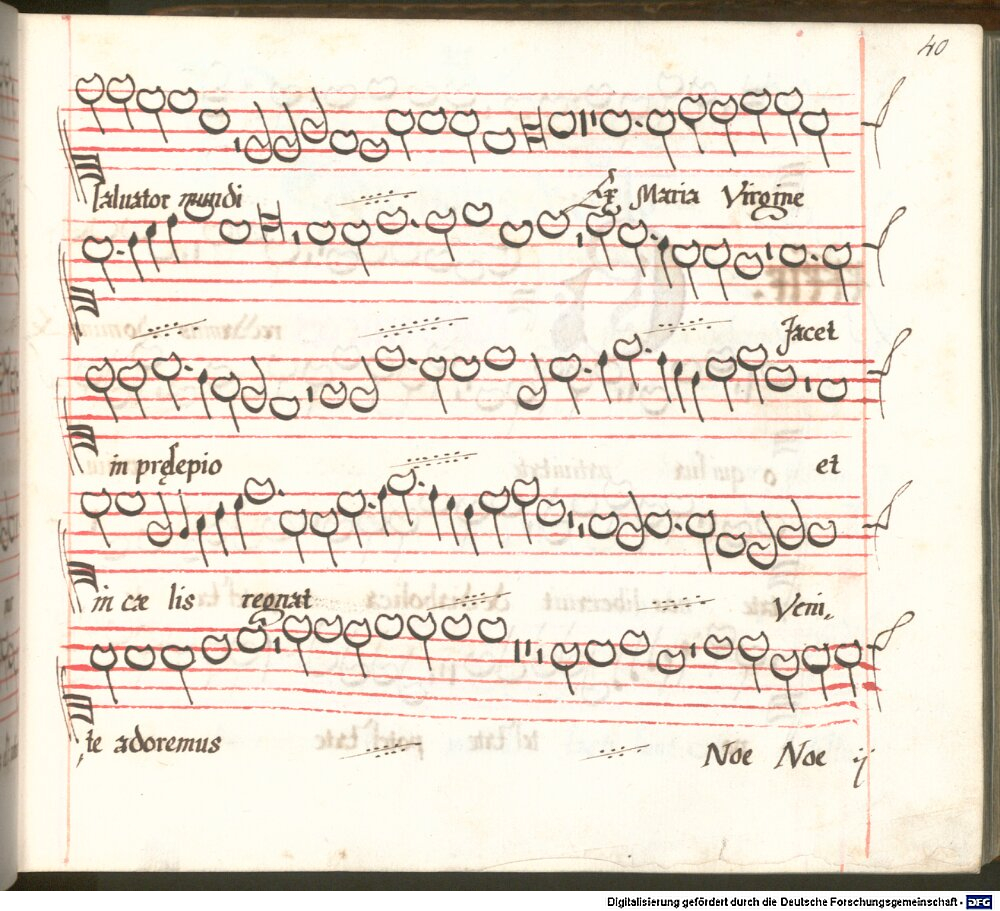 40
Saluator mundi Ex Maria Virgine
Jacet
in pręsepio et
in cæ lis regnat Veni,,
te adoremus Noe Noe ij
Digitalisierung gefördert durch die Deutsche Forschungsgemeinschaft - DFG